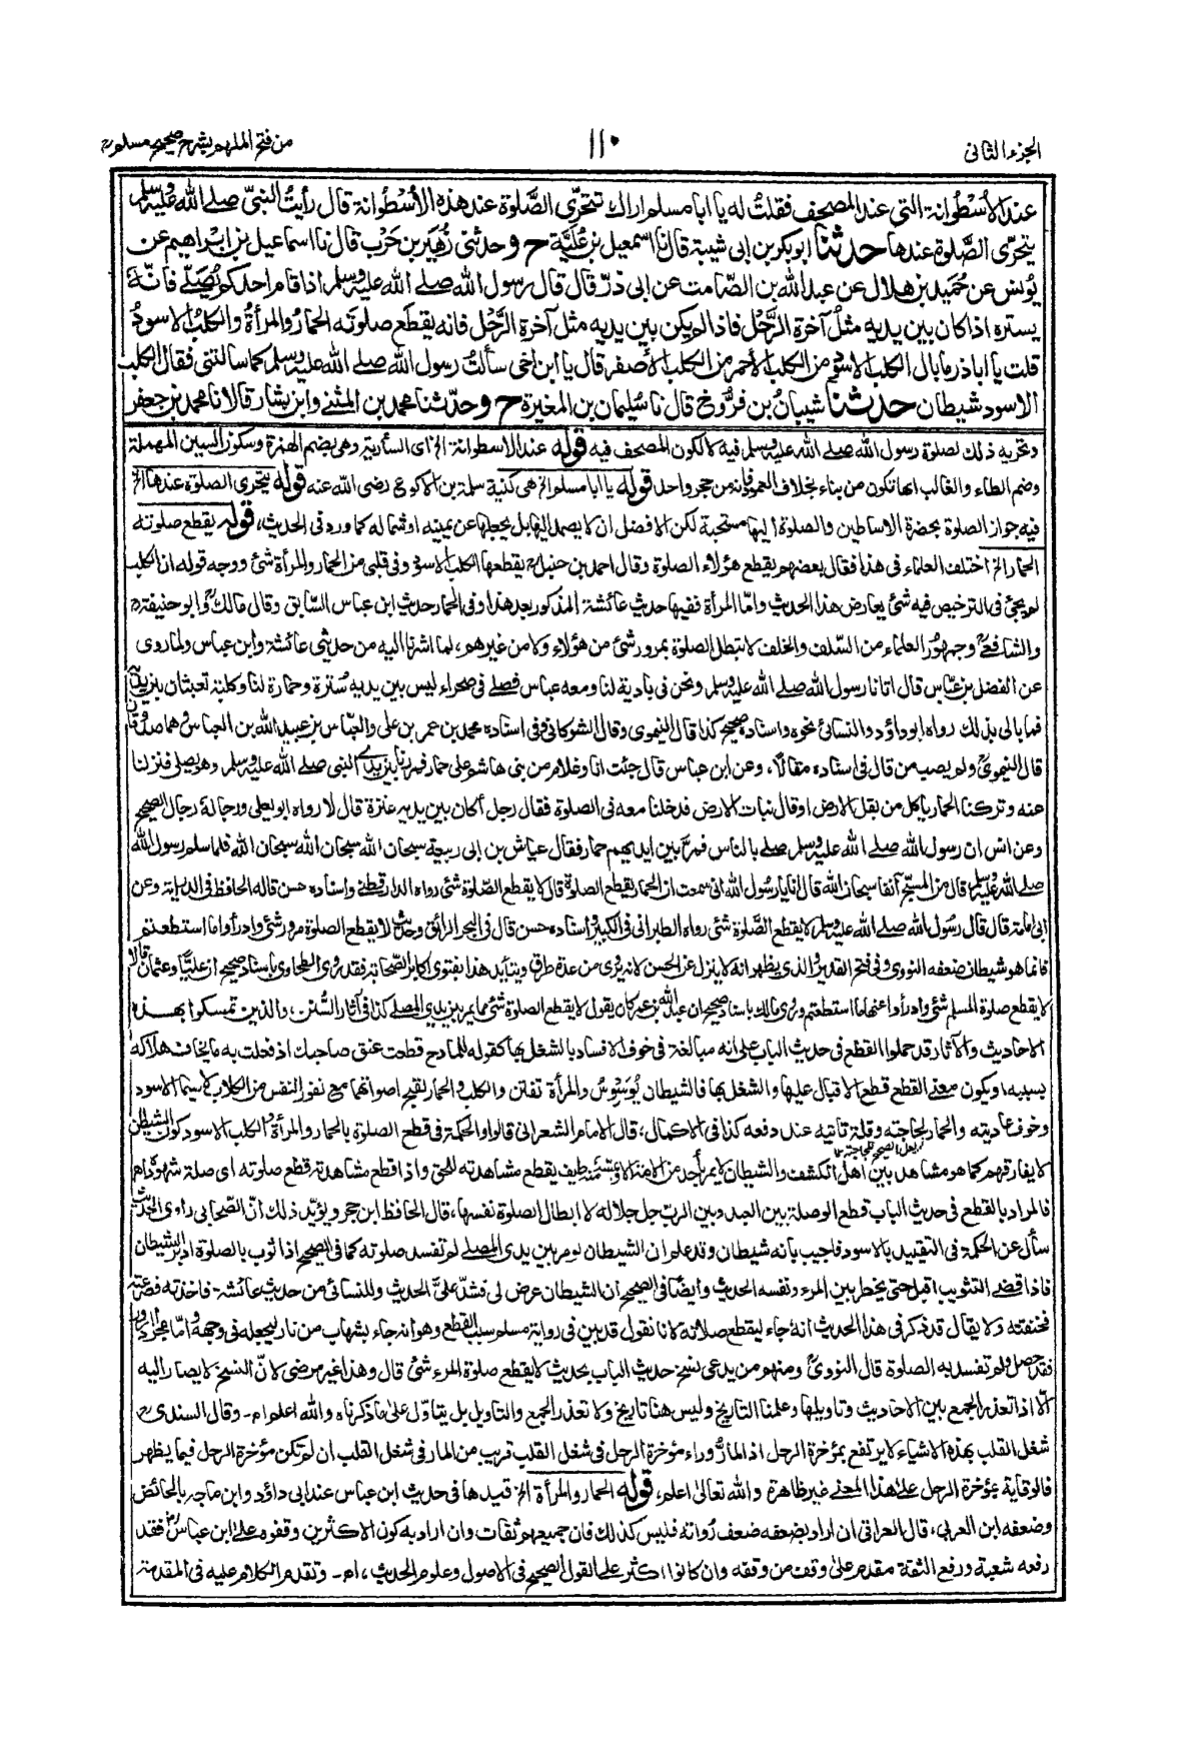 الجزء الثانى
١١٠
من فتح الملهم بشرح صحيح مسلم
عند الاُسْطُوانة التى عند المصحف فقلتُ له يا ابا مسلم اراك تتحرّى الصَّلوة عند هذه الاُسْطُوانة قال رأيتُ النبىّ صلے الله عليه وسلم
يتحرّى الصَّلوة عندها حدثنا ابوبكر بن ابى شيبة قال نا اسمعيل بن عُلَيَّة ح وحدثنى زُهَير بن حَرْب قال نا اسماعيل بن ابراهيم عن
يُونس عن حُمَيد بن هلال عن عبد الله بن الصّامت عن ابى ذرّ قال قال رسول الله صلے الله عليه وسلم اذا قام احدكم يُصَلّى فانّهٗ
يستره اذا كان بين يديه مثلُ آخرة الرَّحْل فاذا لم يكن بين يديه مثل آخرة الرَّحْل فانه يقطع صلوته الحمارُ والمرأةُ والكلبُ الاسودُ
قلت يا اباذر ما بال الكلب الاسود من الكلب الأحمر من الكلب الأصفر قال يا ابن اخى سألتُ رسول الله صلے الله عليه وسلم كما سألتنى فقال الكلب
الاسود شيطان حدثنا شيبانُ بن فَرُّوخ قال نا سُليمان بن المغيرة ح وحدّثنا محمد بن المثنى وابن بشار قالا نا محمد بن جعفر
وتحريه ذلك لصلوة رسول الله صلے الله عليه وسلم فيه لا لكون المصحف فيه قوله عند الاسطوانة الخ اى السارية وهى بضم الهمزة وسكون السين المهملة
وضم الطاء والغالب انها تكون من بناء بخلاف العمود فانه من حجر واحد قوله يا ابا مسلم الخ هى كنية سلمة بن الاكوع رضى الله عنه قوله يتحرى الصلوة عندها الخ
فيه جواز الصلوة بحضرة الاساطين والصلوة اليها مستحبة لكن الافضل ان لا يصمد اليها بل يجعلها عن يمينه او شماله كما ورد فى الحديث، قوله يقطع صلوته
الحمار الخ اختلف العلماء فى هذا فقال بعضهم يقطع هؤلاء الصلوة وقال احمد بن حنبل يقطعها الكلب الاسود وفى قلبى من الحمار والمرأة شئ ووجه قوله ان الكلب
لم يجئ فى الترخيص فيه شئ يعارض هذا الحديث وامّا المرأة ففيها حديث عائشة المذكور بعد هذا وفى الحمار حديث ابن عباس السّابق وقال مالك وابوحنيفة
والشافعى وجمهورُ العلماء من السّلف والخلف لا تبطل الصلوة بمرور شئ من هؤلاء ولا من غيرهم، لما اشرنا اليه من حديثى عائشة وابن عباس ولما روى
عن الفضل بن عبّاس قال اتانا رسول الله صلے الله عليه وسلم ونحن فى بادية لنا ومعه عباس فصلے فى صحراء ليس بين يديه سُترة وحمارة لنا وكلبة تعبثان بين يديه
فما بالى بذلك رواه ابوداؤد والنسائى نحوه واسناده صحيح كذا قال النيموى وقال الشوكانى فى اسناده محمد بن عمر بن على والعبّاس بن عبيد الله بن العباس وهما صدوقان
قال النيموى ولم يصب من قال فى اسناده مقالا، وعن ابن عباس قال جئت انا وغلام من بنى هاشم على حمار فمررنا بين يدى النبى صلے الله عليه وسلم وهو يصلى فنزلنا
عنه وتركنا الحمار يأكل من بقل الارض او قال نبات الارض فدخلنا معه فى الصلوة فقال رجل أكان بين يديه عنزة قال لا رواه ابويعلى ورجالهٗ رجال الصحيح
وعن انس ان رسول الله صلے الله عليه وسلم صلے بالناس فمرّ بين ايديهم حمار فقال عياش بن ابى ربيعة سبحان الله سبحان الله سبحان الله فلما سلم رسول الله
صلے الله عليه وسلم قال من المسبّح آنفا سبحان الله قال انا يا رسُول الله انى سمعت ان الحمار يقطع الصلوة قال لا يقطع الصّلوة شئ رواه الدارقطنى واسناده حسن قاله الحافظ فى الدراية وعن
ابى امامة قال قال رسُول الله صلے الله عليه وسلم لا يقطع الصّلوة شئ رواه الطبرانى فى الكبير واسناده حسن قال فى البحر الرائق وحديث لا يقطع الصلوة مرور شئ وادرأوا ما استطعتم
فانما هو شيطان ضعفه النووى وفى فتح القدير والذى يظهر انه لا ينزل عن الحسن لانه يروى من عدة طرق ويتأيد هذا بفتوى اكابر الصّحابة فقد روى الطحاوى باسناد صحيح ان عليًّا وعثمان قالا
لا يقطع صلوة المسلم شئ وادرأوا عنها ما استطعتم وروى مالك باسناد صحيح ان عبد الله بن عمر كان يقول لا يقطع الصلوة شئ مما يمر بين يدى المصلى كذا فى آثار السُّنن، والذين تمسكوا بهذه
الاحاديث والآثار قد حملوا القطع فى حديث الباب على انه مبالغة فى خوف الافساد بالشغل بها كقوله للمادح قطعت عنق صاحبك اذ فعلت به ما يخاف هلاكه
بسببه، ويكون معنى القطع قطع الاقبال عليها والشغل بها فالشيطان يُوَسْوِسُ والمرأة تفتن والكلب والحمار لقبح اصواتهما مع نفور النفس من الكلاب لاسيما الاسود
وخوف عاديته والحمار لجاجته وقلة تأتيه عند دفعه كذا فى الاكمال، قال الامام الشعرانى قالوا والحكمة فى قطع الصلوة بالحمار والمرأة والكلب الاسود كون الشيطان
لا يفارقهم كما هو مشاهد بين اهل الكشف والشيطان لا يمر بأحد من الامة الا و طيف يقطع مشاهدته للحق واذا قطع مشاهدته قطع صلوته اى صلة شهوده ام
فالمراد بالقطع فى حديث الباب قطع الوصلة بين العبد وبين الرب جل جلاله لا ابطال الصلوة نفسها، قال الحافظ ابن حجر ويؤيّد ذلك انّ الصّحابى راوى الحديث
سأل عن الحكمة فى التقييد بالاسود فاجيب بأنه شيطان وقد علم ان الشيطان لو مر بين يدى المصلى لم تفسد صلوته كما فى الصحيح اذا ثوب بالصلوة ادبر الشيطان
فاذا قضى التثويب اقبل حتى يخطر بين المرء ونفسه الحديث وأيضًا فى الصحيح ان الشيطان عرض لى فشدّ علىَّ الحديث وللنسائى من حديث عائشة فاخذته فصرعته
فخنقته ولا يقال قد ذكر فى هذا الحديث انهٗ جاء ليقطع صلاته لانا نقول قد بين فى رواية مسلم سبب القطع وهو انه جاء بشهاب من نار ليجعله فى وجهه وامّا مجرد المرور
فقد حصل ولم تفسد به الصلوة قال النووى ومنهم من يدعى نسخ حديث الباب بحديث لا يقطع صلوة المرء شئ قال وهذا غير مرضى لانّ النسخ لا يصار اليه
الّا اذا تعذر الجمع بين الاحاديث وتاويلها وعلمنا التاريخ وليس هنا تاريخ ولا تعذر الجمع والتاويل بل يتأوّل على ما ذكرناه والله اعلم ام۔ وقال السندى
شغل القلب بهذه الاشياء لا يرتفع بمؤخرة الرحل اذ المارُّ وراء مؤخرة الرحل فى شغل القلب قريب من المار فى شغل القلب ان لم تكن مؤخرة الرحل فيما يظهر
فالوقاية بمؤخرة الرحل علے هذا المعنى غير ظاهرة والله تعالى اعلم، قوله الحمار والمرأة الخ قيدها فى حديث ابن عباس عند ابى داؤد وابن ماجه بالحائض
وضعفه ابن العربى، قال العراقى ان اراد بضعفه ضعف رُواته فليس كذلك فان جميعهم ثقات وان اراد به كون الاكثرين وقفوه على ابن عباس فقد
رفعه شعبة ورفع الثقة مقدم على وقف من وقفه وان كانوا اكثر على القول الصحيح فى الاصول وعلوم الحديث، ام۔ وتقدم الكلام عليه فى المقدمة